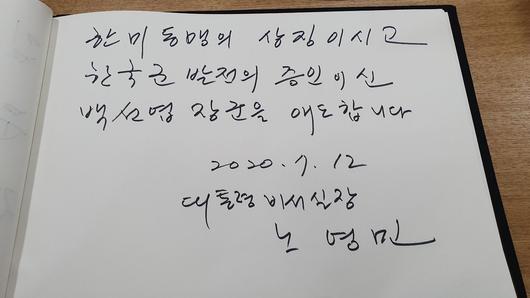 한미동맹의 상징이시고
한국군 발전의 증인이신
백선엽 장군을 애도합니다
2020. 7. 12
대통령비서실장
노영민